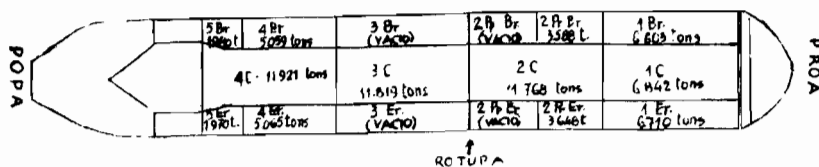 5 Br
1980 t.
4 Br
5.059 tons
3 Br
(VACIO)
2 Pp Br.
(VACIO)
2 Pr Br.
3.588 t.
1 Br.
6.603 tons
POPA
4C - 11921 tons
3 C
11.819 tons
2 C
11 768 tons
1C
6.842 tons
PROA
5 Er
1970 t.
4 Er.
5.065 tons
3 Er.
(VACIO)
2 Pp Er
(VACIO)
2 Pr Er.
3.648 t
1 Er.
6.710 tons
↑
ROTURA